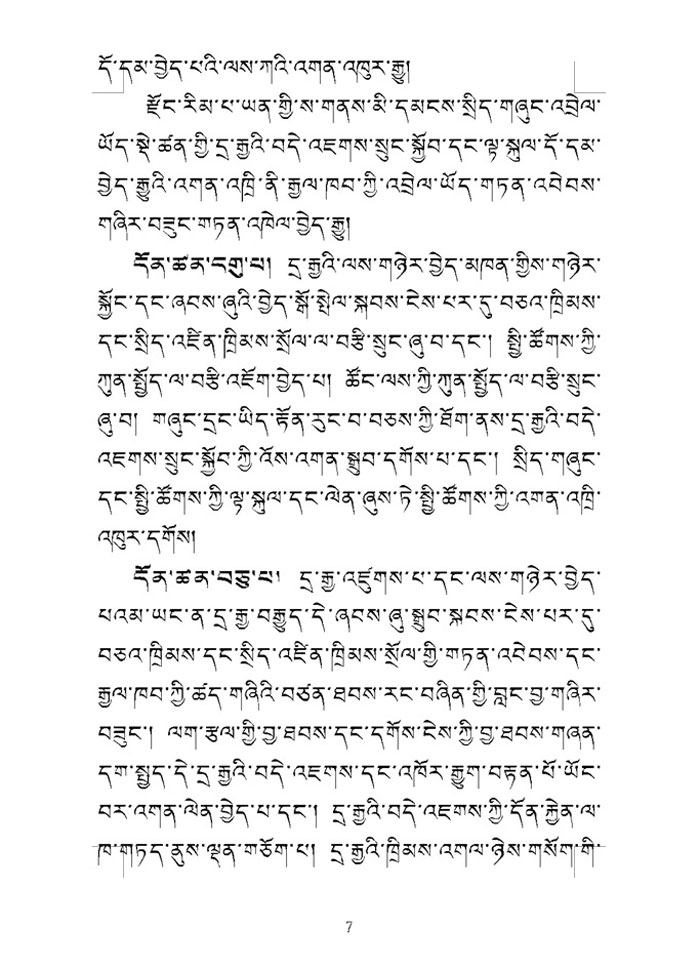 དོ་དམ་བྱེད་པའི་ལས་ཀའི་འགན་འཁུར་རྒྱུ།
རྫོང་རིམ་པ་ཡན་གྱི་ས་གནས་མི་དམངས་སྲིད་གཞུང་འབྲེལ་
ཡོད་སྡེ་ཚན་གྱི་དྲ་རྒྱའི་བདེ་འཇགས་སྲུང་སྐྱོབ་དང་ལྟ་སྐུལ་དོ་དམ་
བྱེད་རྒྱུའི་འགན་འཁྲི་ནི་རྒྱལ་ཁབ་ཀྱི་འབྲེལ་ཡོད་གཏན་འབེབས་
གཞིར་བཟུང་གཏན་འཁེལ་བྱེད་རྒྱུ།
དོན་ཚན་དགུ་པ། དྲ་རྒྱའི་ལས་གཉེར་བྱེད་མཁན་གྱིས་གཉེར་
སྐྱོང་དང་ཞབས་ཞུའི་བྱེད་སྒོ་སྤེལ་སྐབས་ངེས་པར་དུ་བཅའ་ཁྲིམས་
དང་སྲིད་འཛིན་ཁྲིམས་སྲོལ་ལ་བརྩི་སྲུང་ཞུ་བ་དང་། སྤྱི་ཚོགས་ཀྱི་
ཀུན་སྤྱོད་ལ་བརྩི་འཇོག་བྱེད་པ། ཚོང་ལས་ཀྱི་ཀུན་སྤྱོད་ལ་བརྩི་སྲུང་
ཞུ་བ། གཞུང་དྲང་ཡིད་རྟོན་རུང་བ་བཅས་ཀྱི་ཐོག་ནས་དྲ་རྒྱའི་བདེ་
འཇགས་སྲུང་སྐྱོབ་ཀྱི་འོས་འགན་སྒྲུབ་དགོས་པ་དང་། སྲིད་གཞུང་
དང་སྤྱི་ཚོགས་ཀྱི་ལྟ་སྐུལ་དང་ལེན་ཞུས་ཏེ་སྤྱི་ཚོགས་ཀྱི་འགན་འཁྲི་
འཁུར་དགོས།
དོན་ཚན་བཅུ་པ། དྲ་རྒྱ་འཛུགས་པ་དང་ལས་གཉེར་བྱེད་
པའམ་ཡང་ན་དྲ་རྒྱ་བརྒྱུད་དེ་ཞབས་ཞུ་སྒྲུབ་སྐབས་ངེས་པར་དུ་
བཅའ་ཁྲིམས་དང་སྲིད་འཛིན་ཁྲིམས་སྲོལ་གྱི་གཏན་འབེབས་དང་
རྒྱལ་ཁབ་ཀྱི་ཚད་གཞིའི་བཙན་ཐབས་རང་བཞིན་གྱི་བླང་བྱ་གཞིར་
བཟུང་། ལག་རྩལ་གྱི་བྱ་ཐབས་དང་དགོས་ངེས་ཀྱི་བྱ་ཐབས་གཞན་
དག་སྤྱད་དེ་དྲ་རྒྱའི་བདེ་འཇགས་དང་འཁོར་རྒྱུག་བརྟན་པོ་ཡོང་
བར་འགན་ལེན་བྱེད་པ་དང་། དྲ་རྒྱའི་བདེ་འཇགས་ཀྱི་དོན་རྐྱེན་ལ་
ཁ་གཏད་ནུས་ལྡན་གཅོག་པ། དྲ་རྒྱའི་ཁྲིམས་འགལ་ཉེས་གསོག་གི་
7